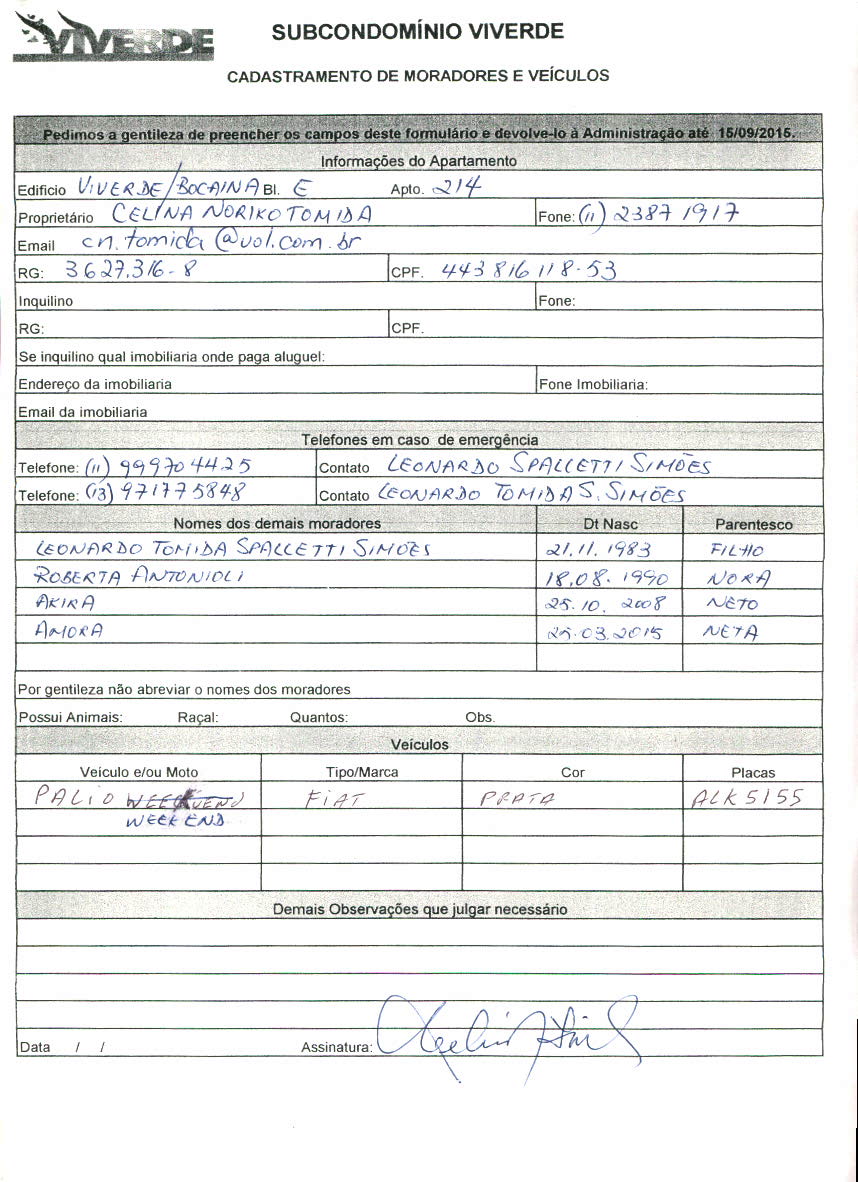 VIVERDE
SUBCONDOMÍNIO VIVERDE
CADASTRAMENTO DE MORADORES E VEÍCULOS
Pedimos a gentileza de preencher os campos deste formulário e devolve-lo à Administração até 15/09/2015.
Informações do Apartamento
Edificio VIVERDE/BOCAINA Bl. E Apto. 214
Proprietário CELINA NORIKO TOMIDA Fone: (11) 2387 1917
Email cn.tomida@uol.com.br
RG: 3627.316-8 CPF. 443 816 118-53
Inquilino Fone:
RG: CPF.
Se inquilino qual imobiliaria onde paga aluguel:
Endereço da imobiliaria Fone Imobiliaria:
Email da imobiliaria
Telefones em caso de emergência
Telefone: (11) 999704425 Contato LEONARDO SPALLETTI SIMÕES
Telefone: (13) 971775848 Contato LEONARDO TOMIDA S. SIMÕES
Nomes dos demais moradores Dt Nasc Parentesco
LEONARDO TOMIDA SPALLETTI SIMOES 21.11.1983 FILHO
ROBERTA ANTONIOLI 18.08.1990 NORA
AKIRA 25.10.2008 NETO
AMORA 25.03.2015 NETA
Por gentileza não abreviar o nomes dos moradores
Possui Animais: Raçal: Quantos: Obs.
Veículos
Veículo e/ou Moto Tipo/Marca Cor Placas
PALIO FIAT PRATA ALK 5155
WEEKEND
Demais Observações que julgar necessário
Data / / Assinatura: